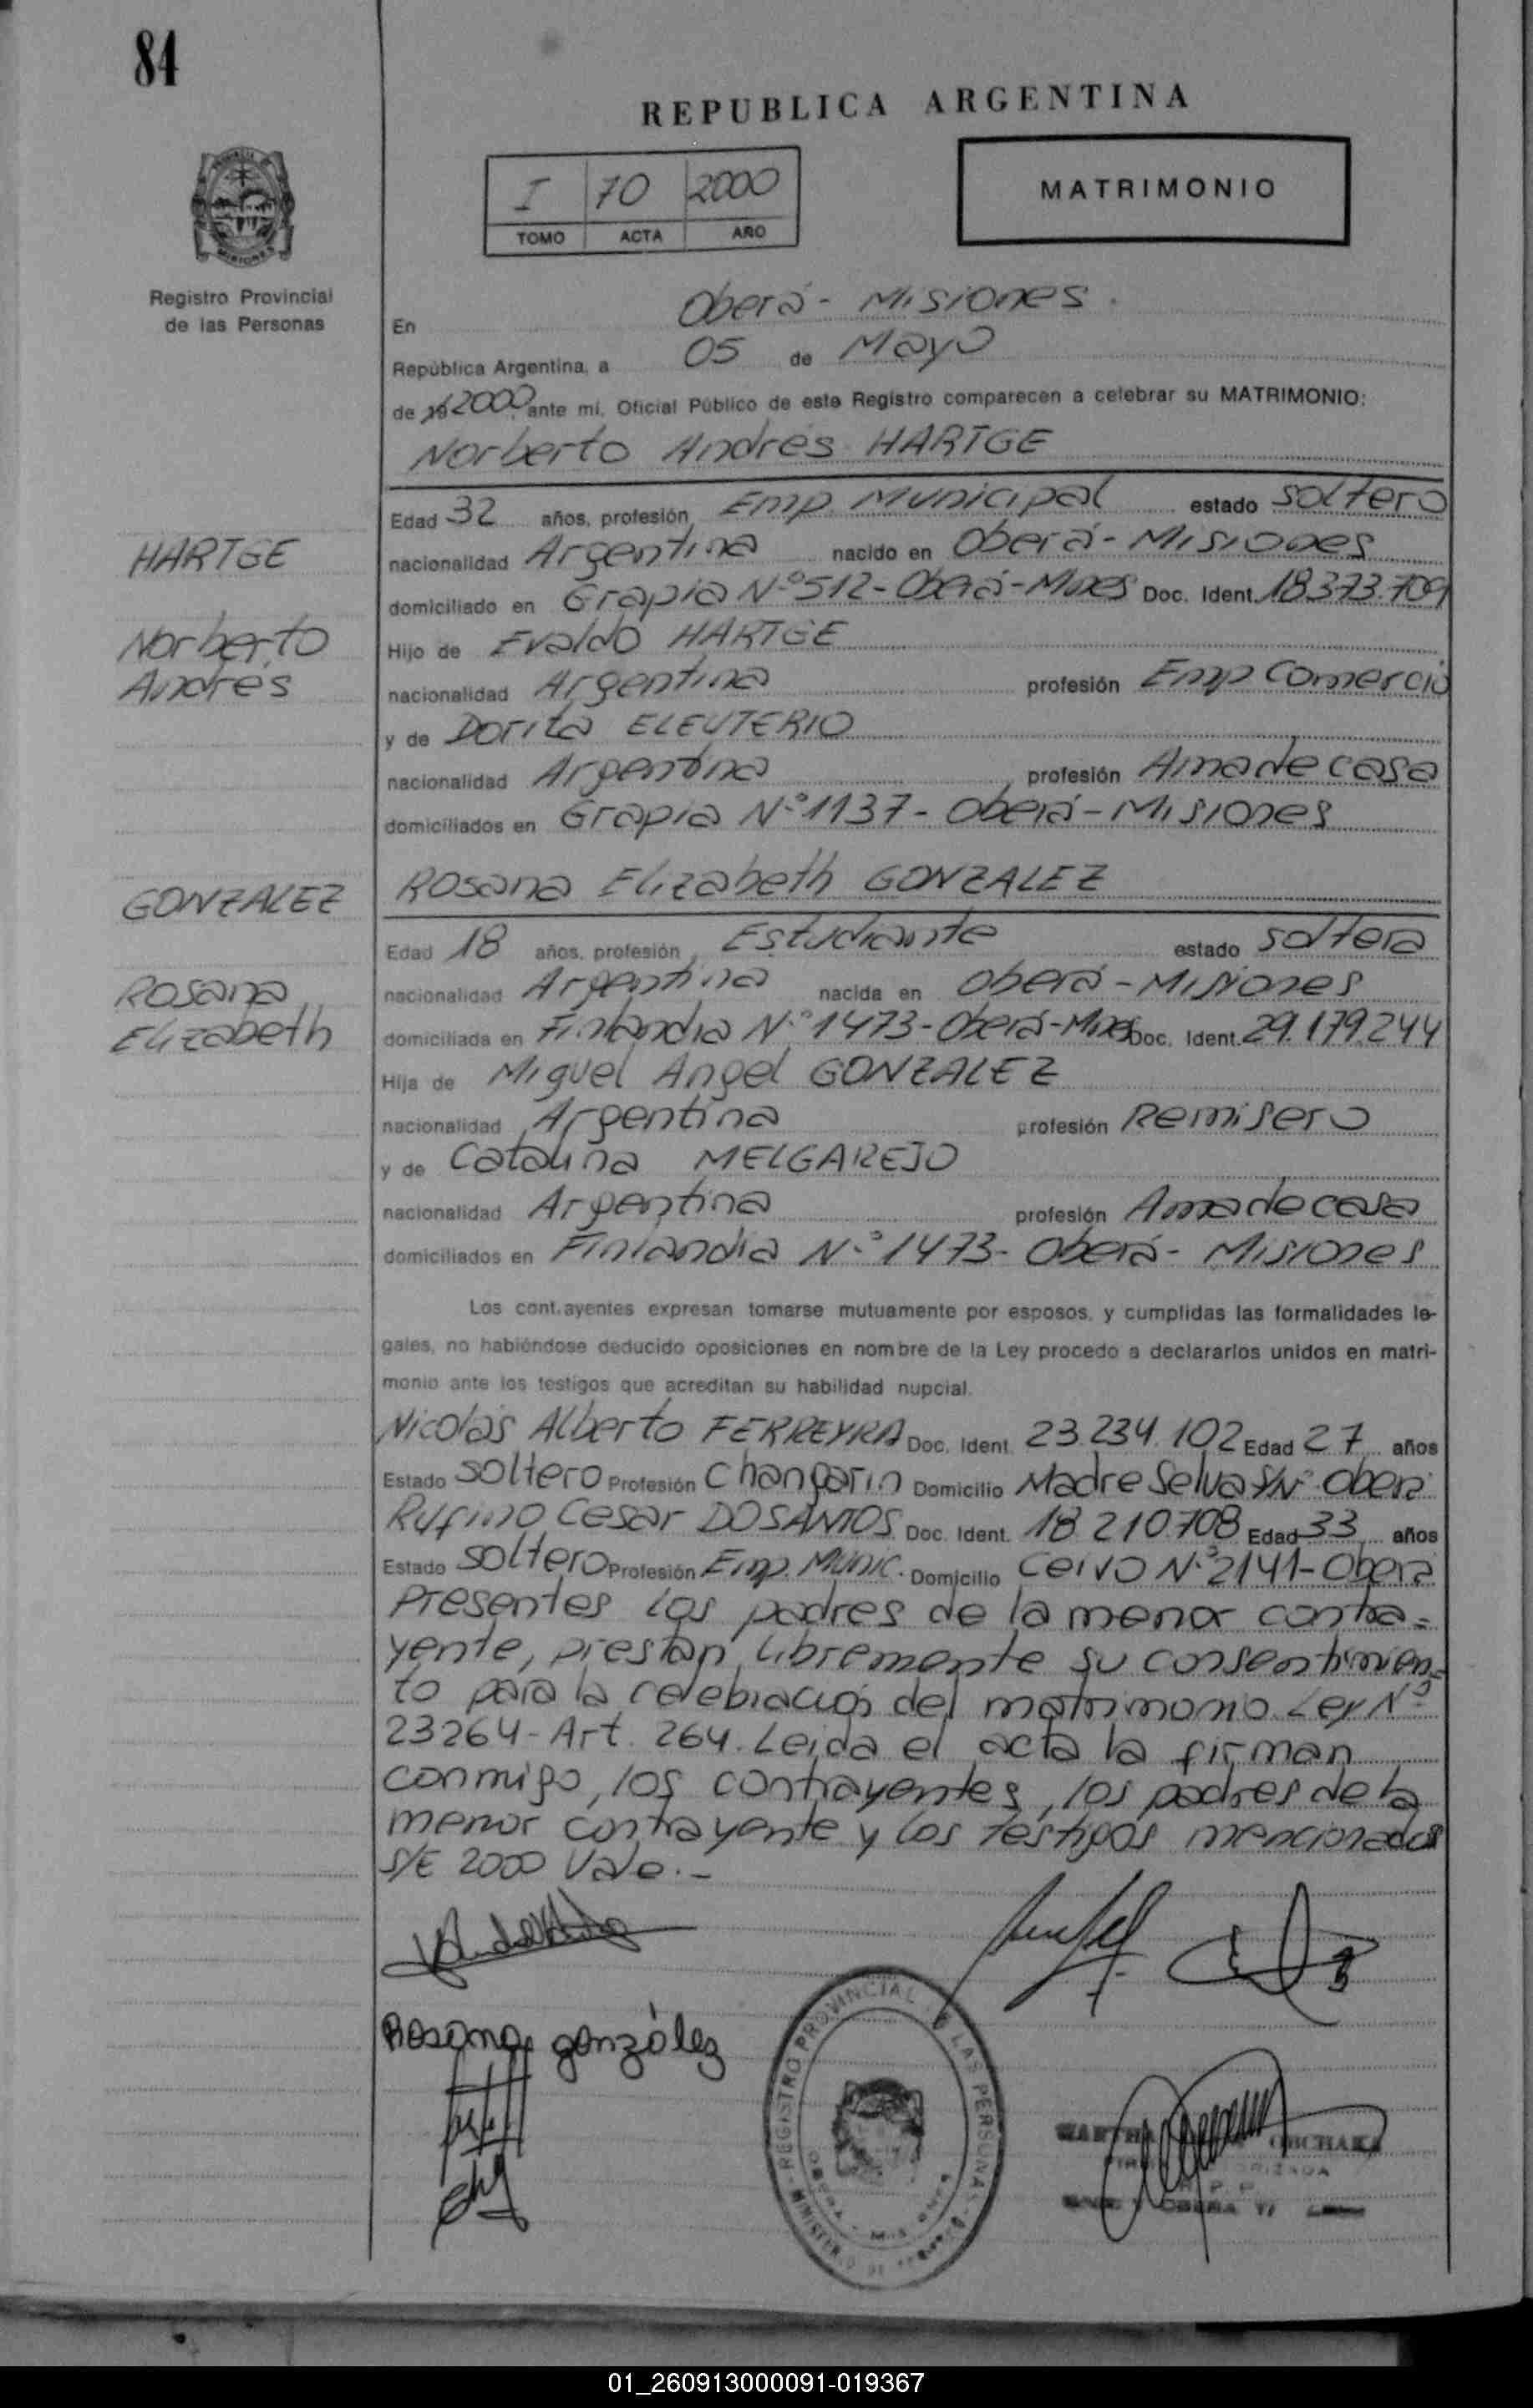 84
REPUBLICA ARGENTINA
I 70 2000
TOMO ACTA AÑO
MATRIMONIO
Registro Provincial
de las Personas
En Oberá - Misiones.
República Argentina, a 05 de Mayo
de 19 2000 ante mí, Oficial Público de este Registro comparecen a celebrar su MATRIMONIO:
Norberto Andrés HARTGE
Edad 32 años, profesión Emp. Municipal estado soltero
HARTGE
nacionalidad Argentina nacido en Oberá - Misiones
domiciliado en Grapia Nº 512 - Oberá - Mnes Doc. Ident. 18.373.709
Norberto
Hijo de Evaldo HARTGE
Andrés
nacionalidad Argentina profesión Emp Comercio
y de Dorita ELEUTERIO
nacionalidad Argentina profesión Ama de casa
domiciliados en Grapia Nº 1137 - Oberá - Misiones
GONZALEZ
Rosana Elizabeth GONZALEZ
Edad 18 años, profesión Estudiante estado soltera
Rosana
nacionalidad Argentina nacida en Oberá - Misiones
Elizabeth
domiciliada en Finlandia Nº 1473 - Oberá - Mnes Doc. Ident. 29.179.244
Hija de Miguel Angel GONZALEZ
nacionalidad Argentina profesión Remisero
y de Catalina MELGAREJO
nacionalidad Argentina profesión Ama de casa
domiciliados en Finlandia Nº 1473 - Oberá - Misiones
Los contrayentes expresan tomarse mutuamente por esposos, y cumplidas las formalidades le-
gales, no habiéndose deducido oposiciones en nombre de la Ley procedo a declararlos unidos en matri-
monio ante los testigos que acreditan su habilidad nupcial.
Nicolás Alberto FERREYRA Doc. Ident. 23.234.102 Edad 27 años
Estado soltero Profesión Changarín Domicilio Madre Selva S/Nº Oberá
Rufino Cesar DOSANTOS Doc. Ident. 18.210.708 Edad 33 años
Estado soltero Profesión Emp. Munic. Domicilio Ceivo Nº 2141 - Oberá
Presentes los padres de la menor contra=
yente, prestan libremente su consentimien=
to para la celebración del matrimonio Ley Nº
23264 - Art. 264. Leída el acta la firman
conmigo, los contrayentes, los padres de la
menor contrayente y los testigos mencionados
S/E 2000 Vale.-
Rosana gonzález
REGISTRO PROVINCIAL DE LAS PERSONAS
MARTHA
R. P. P.
OBERA
01_260913000091-019367